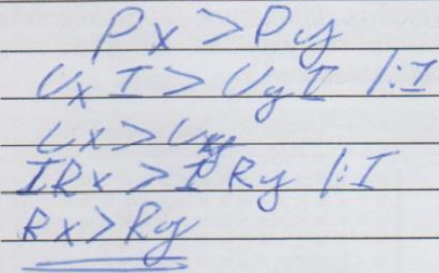 Px > Py
UxI > UyI /:I
Ux > Uy
IRx > IRy /:I
Rx > Ry